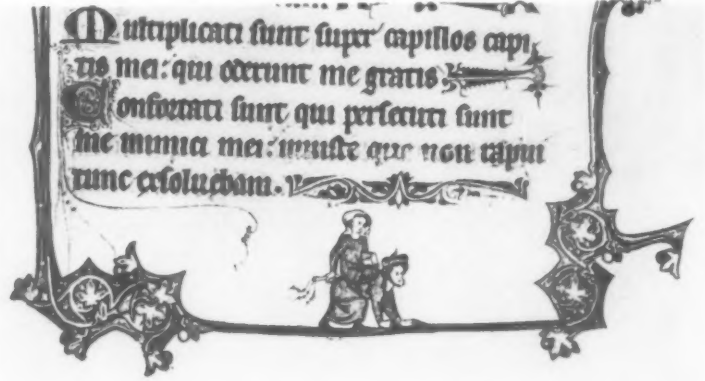 Multiplicati sunt super capillos capi
tis mei: qui oderunt me gratis
Confortati sunt qui persecuti sunt
me inimici mei: iniuste que non rapui
tunc exsoluebam.